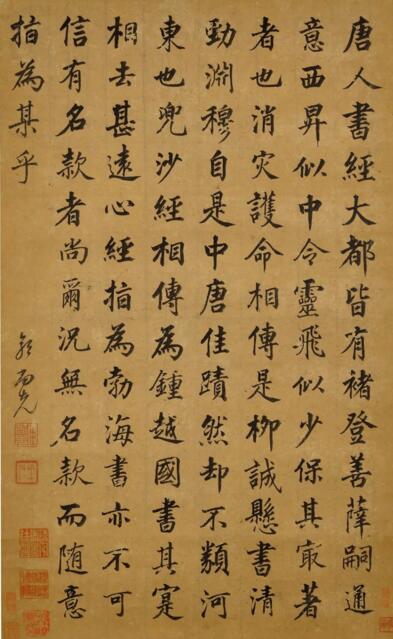 唐人書經大都皆有褚登善薛嗣通
意西昇似中令靈飛似少保其冣著
者也消灾護命相傳是柳誠懸書清
勁淵穆自是中唐佳蹟然却不類河
東也兜沙經相傳為鍾越國書其寔
相去甚遠心經指為勃海書亦不可
信有名款者尚爾況無名款而随意
指為某乎
郭尚先